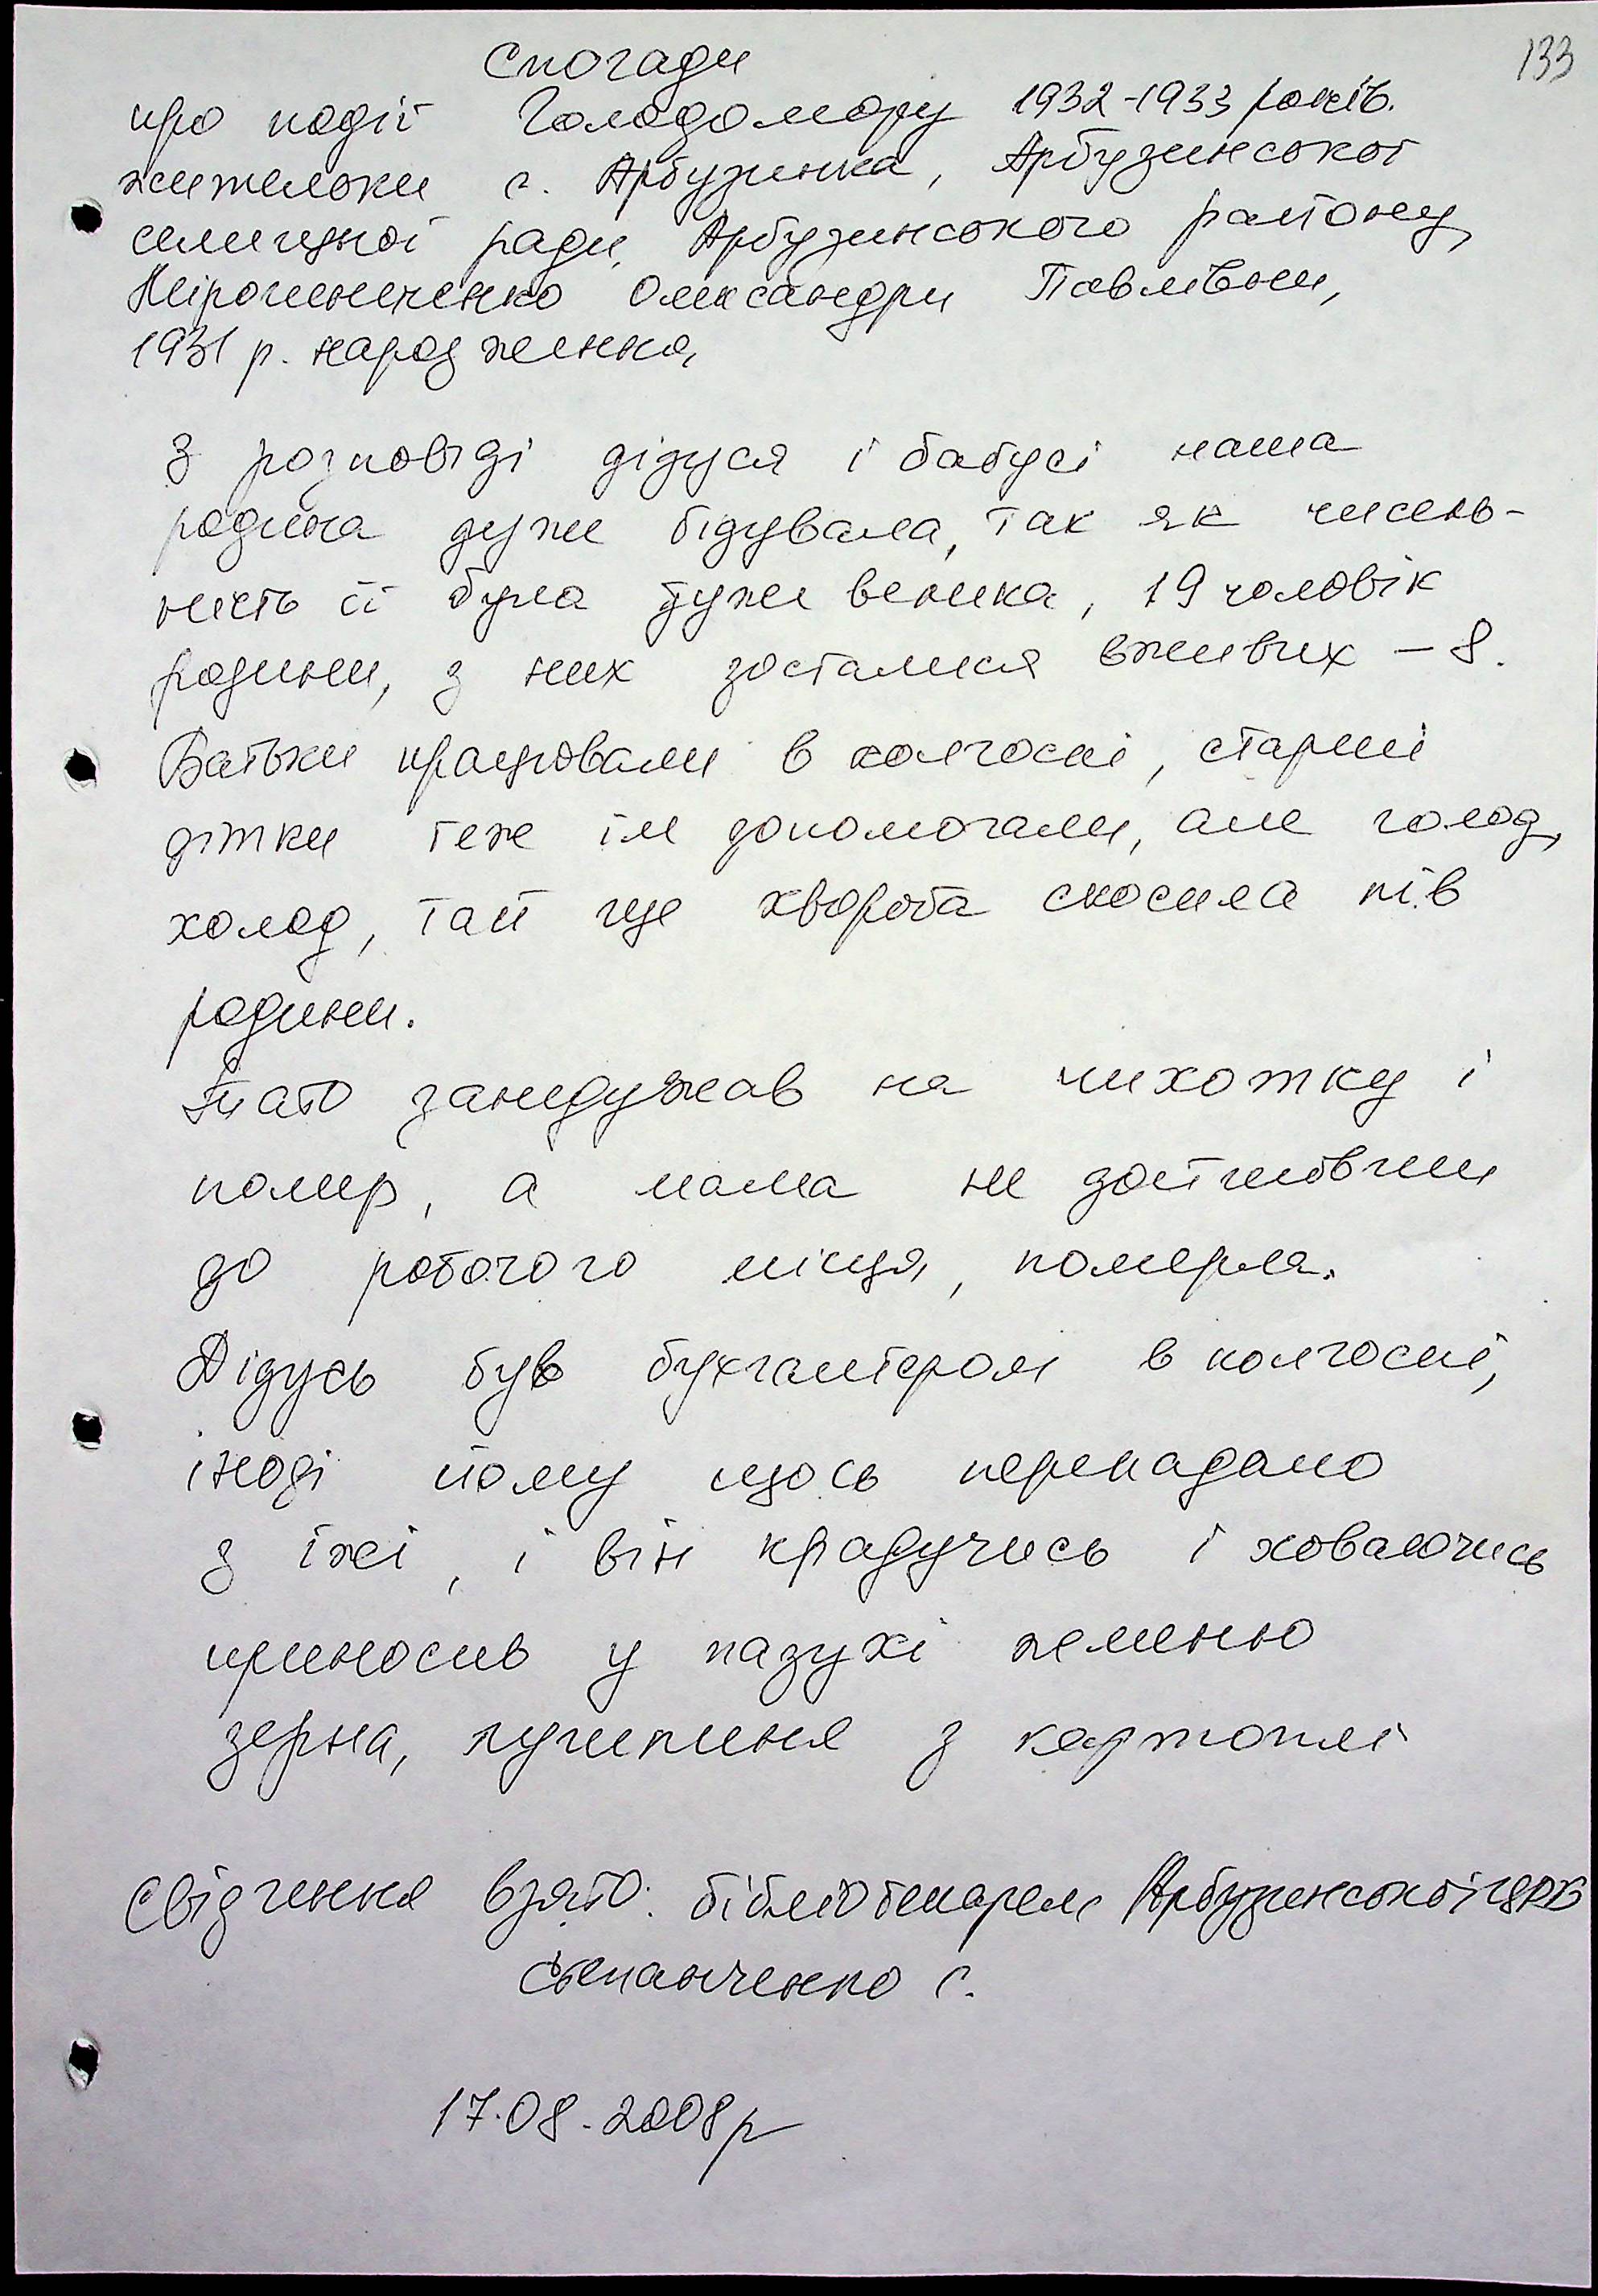 133
Спогади
про події Голодомору 1932-1933 років.
жительки с. Арбузинка, Арбузинської
селищної ради, Арбузинського району,
Мірошниченко Олександри Павлівни,
1931 р. народження,
З розповіді дідуся і бабусі наша
родина дуже бідувала, так як числень-
ність її була дуже велика, 19 чоловік
родини, з них зосталися вживих - 8.
Батьки працювали в колгоспі, старші
дітки теж їм допомогали, але голод,
холод, тай ще хвороба скосила пів
родини.
Тато занедужав на чихотку і
помер, а мама не дойшовши
до робочого місця, померла.
Дідусь був бухгалтером в колгоспі,
іноді йому щось перепадало
з їжі, і він крадучись і ховаючись
приносив у пазухі жменю
зерна, лушпиня з картоплі
Свідчення взято: бібліотекарем Арбузинської ЦРБ
Степанченко С.
17.08.2008р